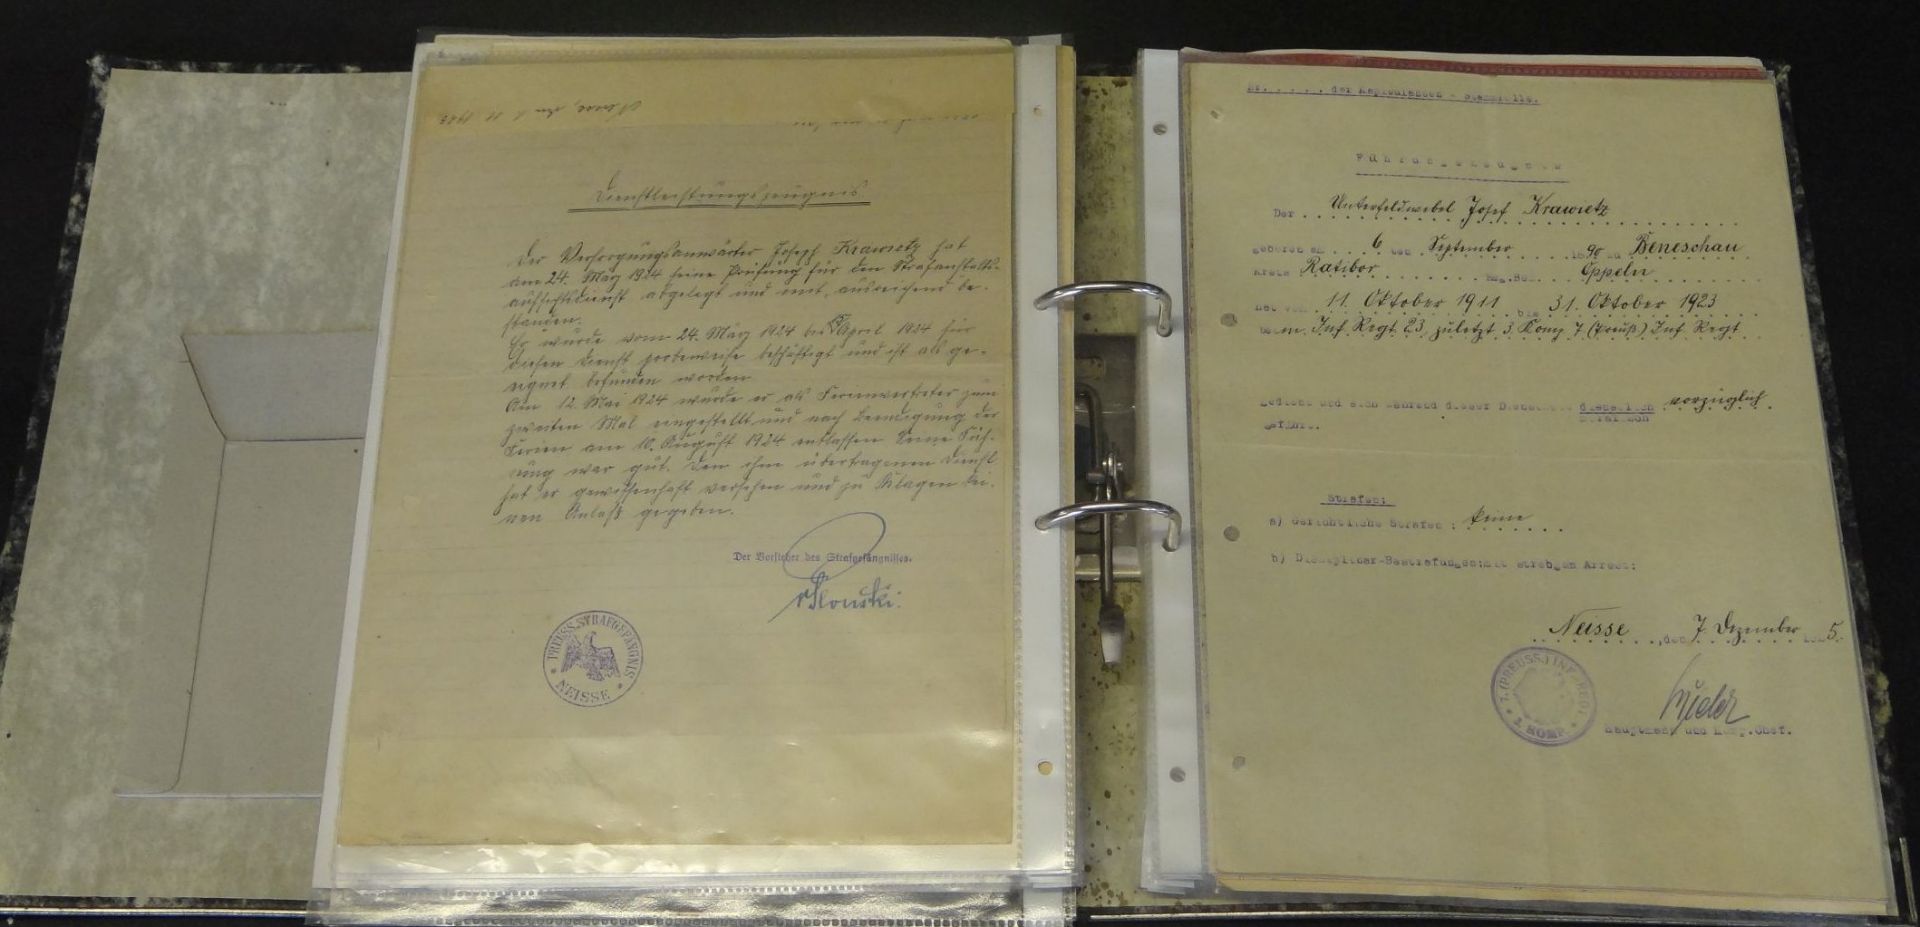 Dienstleistungszeugnis
Der Versorgungsanwärter Joseph Krawietz hat
am 24. März 1924 seine Prüfung für den Strafanstalts-
aufsichtsdienst abgelegt und mit ausreichend be-
standen.
Er wurde vom 24. März 1924 bis April 1924 für
diesen Dienst probeweise beschäftigt und ist als ge-
eignet befunden worden
Am 12. Mai 1924 wurde er als Ferienvertreter zum
zweiten Mal eingestellt und nach Beendigung der
Ferien am 10. August 1924 entlassen Seine Füh-
rung war gut. Dem ihm übertragenen Dienst
hat er gewissenhaft versehen und zu Klagen kei-
nen Anlaß gegeben.
Der Vorsteher des Strafgefängnisses.
PREUSS. STRAFGEFÄNGNIS
NEISSE
der Kapitulanten - Stammrolle.
Führungszeugnis
Der Unterfeldwebel Josef Krawietz
geboren am 6 ten September 1890 zu Beneschau
Kreis Ratibor Reg.Bez. Oppeln
hat vom 11. Oktober 1911 bis 31. Oktober 1923
beim Inf. Regt. 23, zuletzt 3. Komp 7 (Preuß) Inf. Regt.
gedient und sich während dieser Dienstzeit dienstlich vorzüglich
moralisch
geführt.
Strafen:
a) Gerichtliche Strafen : keine
b) Disziplinar-Bestrafungen: mit strengem Arrest:
Neisse, den 7. Dezember 1925.
7. (PREUSS.) INF. REGT.
3. KOMP.
Hauptmann und Komp.Chef.